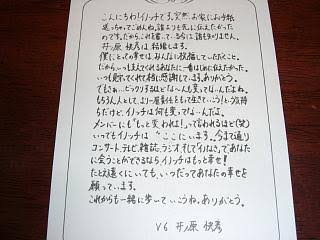 こんにちわ!イノッチです。突然、お家にお手紙
送っちゃってごめんね。誰よりも先に伝えたかった
のです。だから、これを書いている今は誰も知りません。
井ノ原快彦は結婚します。
僕にとっての幸せは、みんなに祝福していただくこと。
だから、いつも支えてくれるあなたに一番はじめに伝えたかった。
いつも見ててくれて本当に感謝してます。ありがとう。
でもさぁ、ビックリするほどな〜んも変ってないんだよね。
もちろん人として、より一層責任をもって生きていこう!という気持
ちだけど、イノッチは何も変ってな〜んだよ。
メンバーにも"もっと変われよ!"って言われるほど(笑)
いつでもイノッチは"ここ"にいます。今まで通り
コンサート、テレビ、雑誌、ラジオ、そして「イノなき」であなた
に会うことができるなら、イノッチはもっと幸せ!
たとえ遠くにいても、いつだってあなたの幸せを
願っています。
これからも一緒に歩いていこうね。ありがとう。
V6 井ノ原快彦